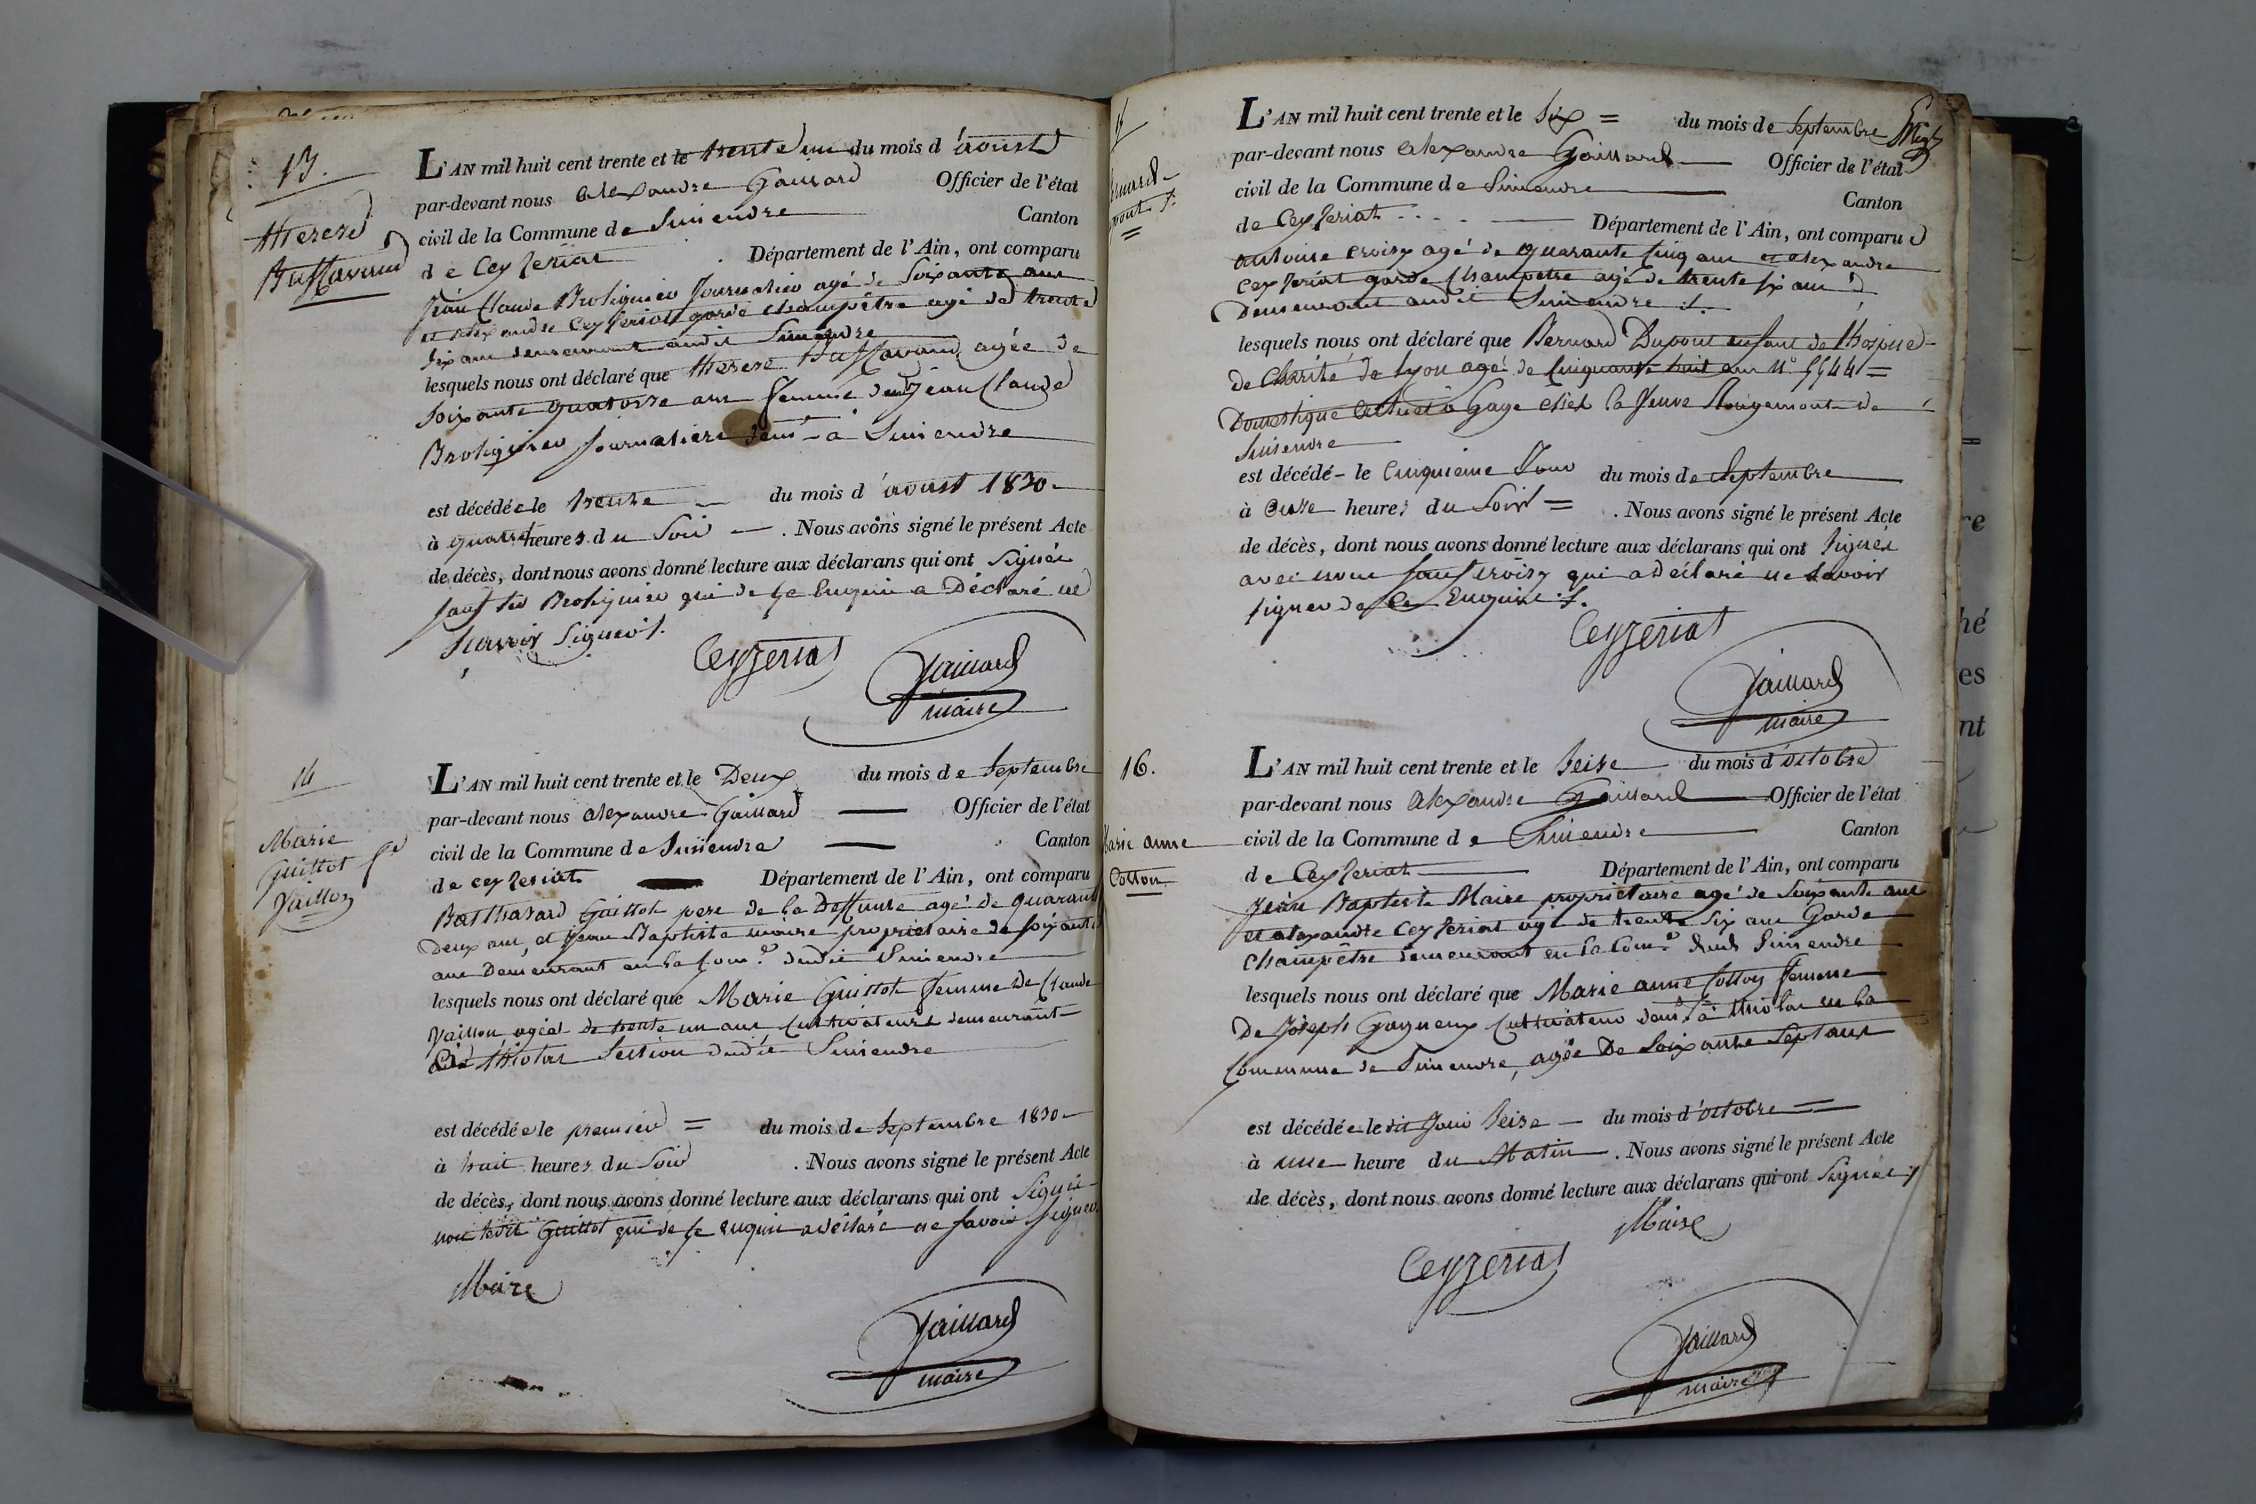 13.
therese
Buffavand
L'AN mil huit cent trente et le trente un du mois d'aoust
par-devant nous alexandre Gaillard Officier de l'état
civil de la Commune de Simendre Canton
de Ceyzeriat Département de l'Ain, ont comparu
Jean Claude Broliquier Journalier agé de Soixante ans
et alexandre Ceyzeriat garde champêtre agé de trente
six ans demeurant audit Simandre
lesquels nous ont déclaré que therese Buffavand agée de
soixante quatorze ans femme du Jean Claude
Broliquier Journaliere dem.t à Simendre
est décédée le trente du mois d'aoust 1830
à quatre heures du Soir. Nous avons signé le présent Acte
de décès, dont nous avons donné lecture aux déclarans qui ont Signés
sauf Broliquier qui de ce Enquis a Déclaré ne
savoir Signer ./.
Ceyzeriat
Gaillard
maire
14
Marie
Guillot fe
Vaillon
L'AN mil huit cent trente et le Deux du mois de Septembre
par-devant nous alexandre Gaillard Officier de l'état
civil de la Commune de Simendre Canton
de ceyzeriat Département de l'Ain, ont comparu
Balthazard Guillot pere de la Deffunte agé de quarante
Deux ans, et Jean Baptiste maire propriétaire de soixante
ans Demeurant en la Com.e dudit Simendre
lesquels nous ont déclaré que Marie Guillot femme De Claude
Vaillon, agée de trente un ans Cultivateurs demeurant
à thiolas Section dudit Simendre
est décédée le premier = du mois de Septembre 1830
à huit heures du Soir. Nous avons signé le présent Acte
de décès, dont nous avons donné lecture aux déclarans qui ont Signé
non ledit Guillot qui de ce enquis a déclaré ne savoir signer
Maire
Gaillard
maire
Bernard
Dupont
L'AN mil huit cent trente et le Six = du mois de Septembre
par-devant nous alexandre Gaillard Officier de l'état
civil de la Commune de Simendre Canton
de Ceyzeriat Département de l'Ain, ont comparu
antoine croisy agé de quarante cinq ans et alexandre
ceyzeriat garde Champetre agé de trente six ans
Demeurant audit Simendre ./.
lesquels nous ont déclaré que Bernard Dupont enfant de l'hospice
de Charité de Lyon agé de Cinquante huit ans N° 5544 =
Domestique actuel à Gage chez la Veuve Rougemont de
Simendre
est décédé le Cinquieme Jour du mois de Septembre
à onze heures du Soir =. Nous avons signé le présent Acte
de décès, dont nous avons donné lecture aux déclarans qui ont Signés
avec nous sauf croisy qui a déclaré ne savoir
signer de ce Enquis ./.
Ceyzeriat
Gaillard
maire
16.
Marie anne
Cotton
L'AN mil huit cent trente et le Seise du mois d'octobre
par-devant nous Alexandre Gaillard Officier de l'état
civil de la Commune de Simendre Canton
de Ceyzeriat Département de l'Ain, ont comparu
Jean Baptiste Maire propriétaire agé de Soixante ans
et alexandre Ceyzeriat agé de trente Six ans Garde
champêtre demeurant en la Com.e dudt Simendre
lesquels nous ont déclaré que Marie anne Cotton femme
De Joseph Gagneux Cultivateur dem.t à thiolas en la
Commune de Simendre, agée De Soixante Sept ans
est décédée le dit Jour Seise du mois d'octobre
à une heure du Matin. Nous avons signé le présent Acte
de décès, dont nous avons donné lecture aux déclarans qui ont Signés ./.
Maire
Ceyzeriat
Gaillard
maire